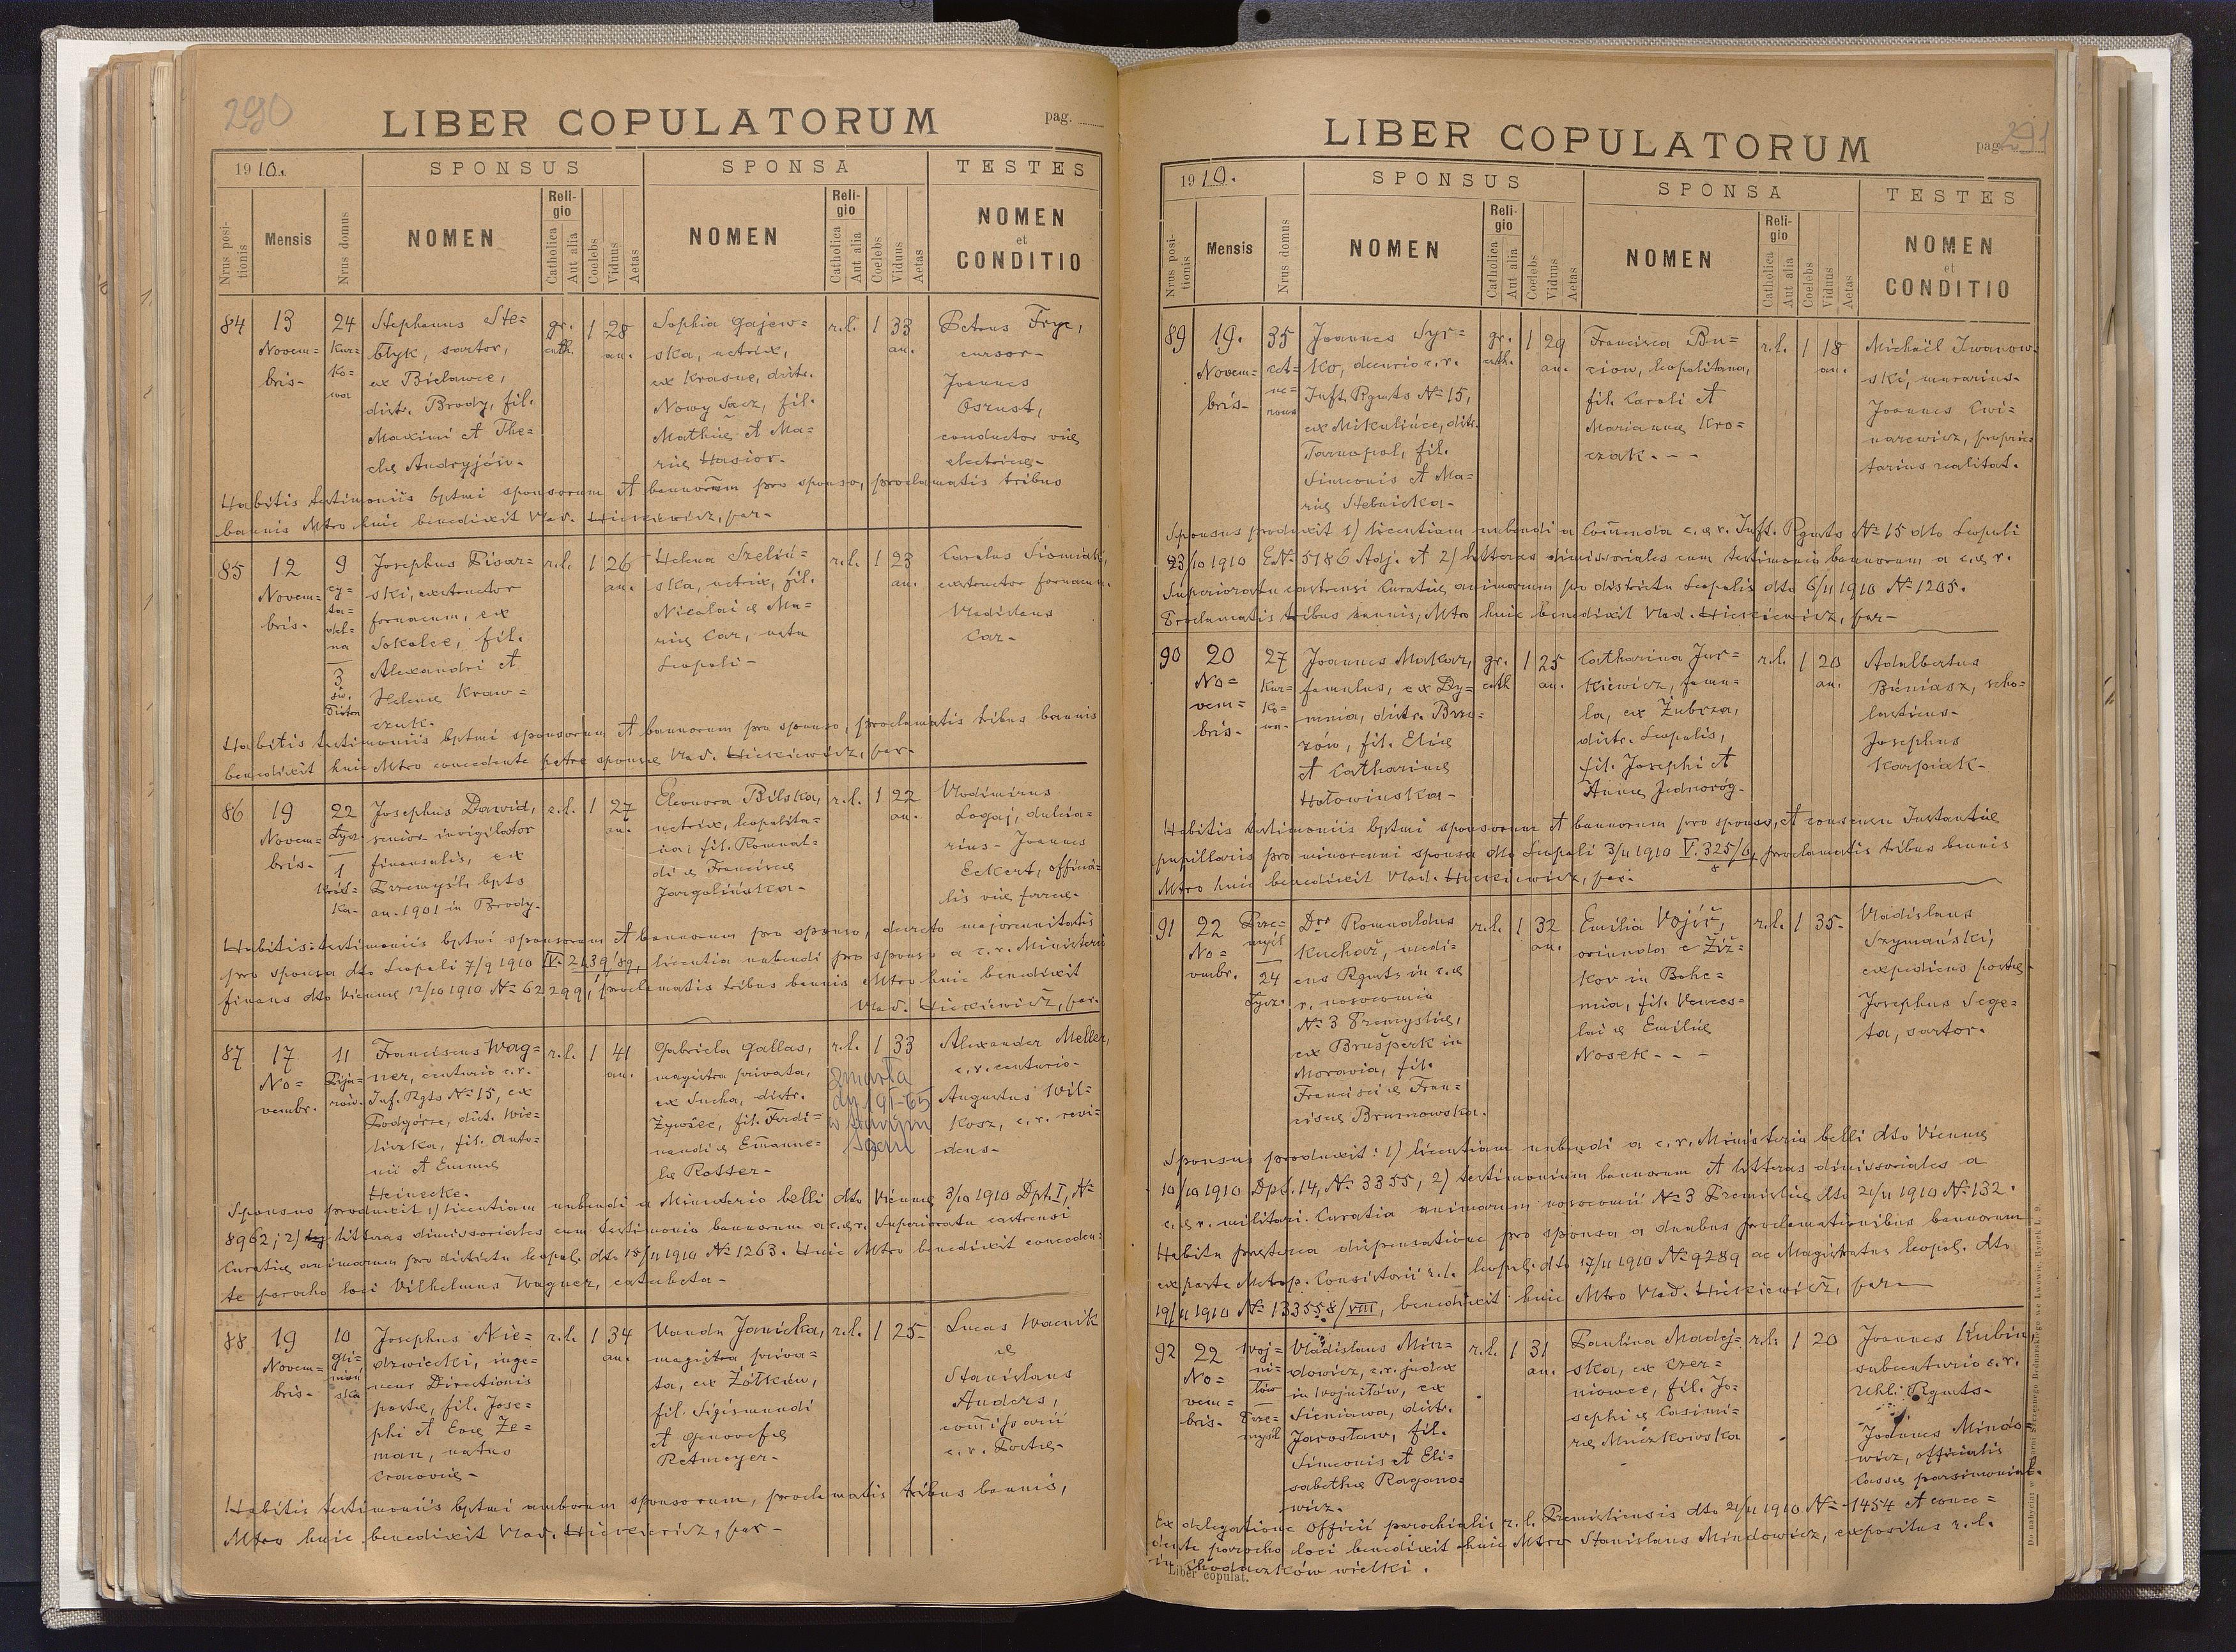 290
LIBER COPULATORUM
pag.
1910.
SPONSUS
SPONSA
TESTES
Nrus positionis
Mensis
Nrus domus
NOMEN
Religio
Catholica
Aut alia
Coelebs
Viduus
Aetas
NOMEN
Religio
Catholica
Aut alia
Coelebs
Viduus
Aetas
NOMEN
et
CONDITIO
84
13
Novem=
bris-
24
Kur=
ko=
wa
Stephanus Ste=
błyk, sartor,
ex Bielawce,
distr. Brody, fil.
Maximi et The=
clae Andryjów.
gr.
cath.
1
28
an.
Sophia Gajew=
ska, netrix,
ex Krasne, distr.
Nowy Sącz, fil.
Mathiae et Ma=
riae Hasior-
r.l.
1
33
an.
Petrus Fryc,
cursor-
Joannes
Oszust,
conductor viae
electricae-
Habitis testimoniis bptmi sponsorum et bannorum pro sponso, proclamatis tribus
bannis Mtro huic benedixit Vlad. Hickiewicz, par.-
85
12
Novem=
bris.
9
cy=
ta=
del=
na
3
św.
Piotra
Josephus Pisar=
ski, exstructor
fornacum, ex
Sokolce, fil.
Alexandri et
Helenae Kraw=
czuk.
r.l.
1
26
an.
Helena Szeliń=
ska, netrix, fil.
Nicolai & Ma=
riae Car, nata
Leopoli-
r.l.
1
23
an.
Carolus Siomiak,
exstructor fornacum.
Vladislaus
Car-
Habitis testimoniis bptmi sponsorum et bannorum pro sponso, proclamatis tribus bannis
benedixit huic Mtro concedente patre sponsae Vlad. Hickiewicz, par.
86
19
Novem=
bris-
22
Łycz.
1
Kraś=
ka-
Josephus Dawid,
senior invigilator
finansalis, ex
Przemyśl, bpts
an. 1901 in Brody.
r.l.
1
27
an.
Eleonora Bilska,
netrix, leopolita=
na, fil. Romual=
di & Franciscae
Jargolińska-
r.l.
1
22
an.
Vlodimirus
Logaj, dulcia=
rius- Joannes
Eckert, officia=
lis viae ferreae-
Habitis: testimoniis bptmi sponsorum et bannorum pro sponso, decreto majorennitatis
pro sponsa dto Leopoli 7/9 1910 IV. 2139/89, licentia nubendi pro sponso a c.r. Ministerio
finans dto Viennae 12/10 1910 № 62299, proclamatis tribus bannis Mtro huic benedixit
Vlad. Hickiewicz, par.
87
17
No=
vembr.
11
Pija=
rów.
Franciscus Wag=
ner, centurio c.r.
Inf. Rgts № 15, ex
Podgórze, distr. Wie=
liczka, fil. Anto=
nii et Emmae
Heinecke.
r.l.
1
41
an.
Gabriela Gallas,
magistra privata,
ex Sucha, distr.
Żywiec, fil. Ferdi=
nandi & Emanue=
lae Rosser-
r.l.
1
33
zmarła
Alexander Meller,
c.r. centurio-
Augustus Wil=
kosz, c.r. revi=
dens-
Sponsus produxit 1) licentiam nubendi a Ministerio belli dto Viennae 3/10 1910 Dpt. I, №
8962; 2) litteras dimissoriales cum testimonio bannorum a c.&r. Superioratu castrensi
Curatiae animarum pro districtu leopol. dto 15/11 1910 № 1263. Huic Mtro benedixit conceden=
te parocho loci Vilhelmus Wagner, catecheta-
88
19
Novem=
bris-
10
gli=
niań
ska
Josephus Nie=
dzwiecki, inge=
neur Directionis
postae, fil. Jose=
phi et Evae Ze=
man, natus
Cracoviae-
r.l.
1
34
an.
Vanda Janicka,
magistra priva=
ta, ex Żółkiew,
fil. Sigismundi
et Genovefae
Retmeyer-
r.l.
1
25-
Lucas Wacnik
&
Stanislaus
Anders,
comissarii
c.r. Postae-
Habitis testimoniis bptmi amborum sponsorum, proclamatis tribus bannis,
Mtro huic benedixit Vlad. Hickiewicz, par-
LIBER COPULATORUM
pag. 291
1910.
SPONSUS
SPONSA
TESTES
Nrus positionis
Mensis
Nrus domus
NOMEN
Religio
Catholica
Aut alia
Coelebs
Viduus
Aetas
NOMEN
Religio
Catholica
Aut alia
Coelebs
Viduus
Aetas
NOMEN
et
CONDITIO
89
19.
Novem=
bris-
35
Joannes Syr=
ko, decurio c.r.
Inft. Rgmts № 15,
ex Mikulińce, distr.
Tarnopol, fil.
Simeonis et Ma=
riae Stebnicka-
gr.
cath.
1
29
an.
Francisca Bu=
ciow, leopolitana,
fil. Caroli et
Mariannae Kro=
czak. - -
r.l.
1
18
an.
Michaël Iwanow=
ski, murarius-
Joannes Cwi=
narewicz, proprie=
tarius realitat.
Sponsus produxit 1) licentiam nubendi a Comenda c.&r. Inft. Rgmts № 15 dto Leopoli
23/10 1910 E.№ 5186 Adj. et 2) litteras dimissoriales cum testimonio bannorum a c.&r.
Superioratu castrensi Curatiae animarum pro districtu Leopolis dto 6/11 1910 № 1205.
Proclamatis tribus bannis, Mtro huic benedixit Vlad. Hickiewicz, par-
90
20
No=
vem=
bris-
27
Kur=
ko=
wa-
Joannes Makar,
famulus, ex Dy=
mnia, distr. Brzo=
zów, fil. Eliae
et Catharinae
Hołowinska-
gr.
cath
1
25
an.
Catharina Jur=
kiewicz, famu=
la, ex Żubrza,
distr. Leopolis,
fil. Josephi et
Annae Jednoróg-
r.l.
1
20
an.
Adalbertus
Bieniasz, scho=
lasticus-
Josephus
Karpiak-
Habitis testimoniis bptmi sponsorum et bannorum pro sponso, et consensu Instantiae
pupillaris pro minorenni sponsa dto Leopoli 3/11 1910 V. 325/8, proclamatis tribus bannis
Mtro huic benedixit Vlad. Hickiewicz, par.
91
22
No=
vmbr.
Prze=
myśl
24
Łycz.
Drr Romualdus
Kuchař, medi=
cus Rgmts in c.&
r. nosocomio
№ 3 Premysliae,
ex Brušperk in
Moravia, fil.
Francisci & Fran=
ciscae Brumowska.
r.l.
1
32
an.
Emilia Vojíř,
oriunda e Žiž=
kov in Bohe=
mia, fil. Vences=
lai & Emiliae
Nosek- - -
r.l.
1
35-
Vladislaus
Szymański,
expediens postae-
Josephus Sege=
ta, sartor.
Sponsus produxit: 1) licentiam nubendi a c.r. Ministerio belli dto Viennae
10/10 1910 Dpt. 14, № 3355, 2) testimonium bannorum et litteras dimissoriales a
c.&r. militari Curatia animarum nosocomii № 3 Premisliae dto 21/11 1910 № 132.
Habita praeterea dispensatione pro sponsa a duabus proclamationibus bannorum
ex parte Metrop. Consistorii r.l. leopol. dto 17/11 1910 № 9289 ac Magistratus leopol. dto
19/11 1910 № 133558/VIII, benedixit huic Mtro Vlad. Hickiewicz, par-
92
22
No=
vem=
bris-
Woj=
ni=
łów
Prze=
myśl
Vladislaus Min=
dowicz, c.r. judex
in Wojniłów, ex
Sieniawa, distr.
Jarosław, fil.
Simeonis et Eli=
sabethae Ragano=
wicz.
r.l.
1
31
an.
Paulina Madej=
ska, ex Czer=
niowce, fil. Jo=
sephi & Casimi=
rae Miczkowska
r.l.
1
20
Joannes Kubin,
subcenturio c.r.
Uhl. Rgmts-
Joannes Mindo=
wicz, officialis
Cassae parsimonial.
Ex delegatione Officii parochialis r.l. Premisliensis dto 21/11 1910 № 1454 et conce=
dente parocho loci benedixit huic Mtro Stanislaus Mindowicz, expositus r.l.
in Chodaczków wielki.
Liber copulat.